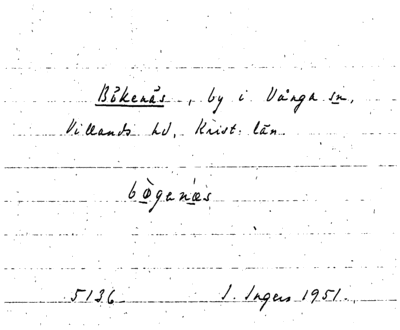 Bökenäs, by i Vånga sn,
Villands hd, Krist. län
bògenǽs
5136 I. Ingers 1951.